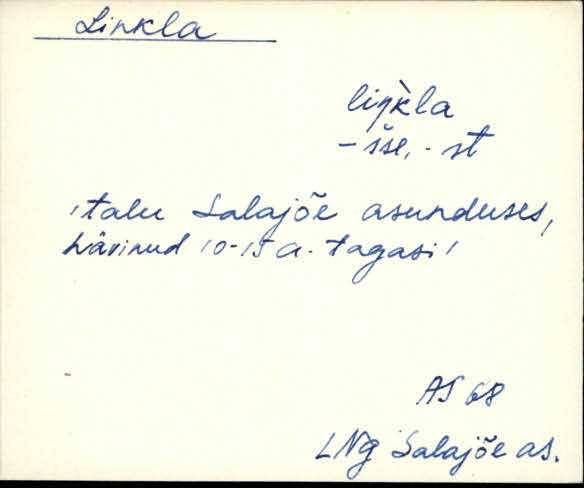 Linkla
liŋ̀kla
- sse, - st
'talu Salajõe asunduses,
hävinud 10-15 a. tagasi'
AS 68
LNg Salajõe as.